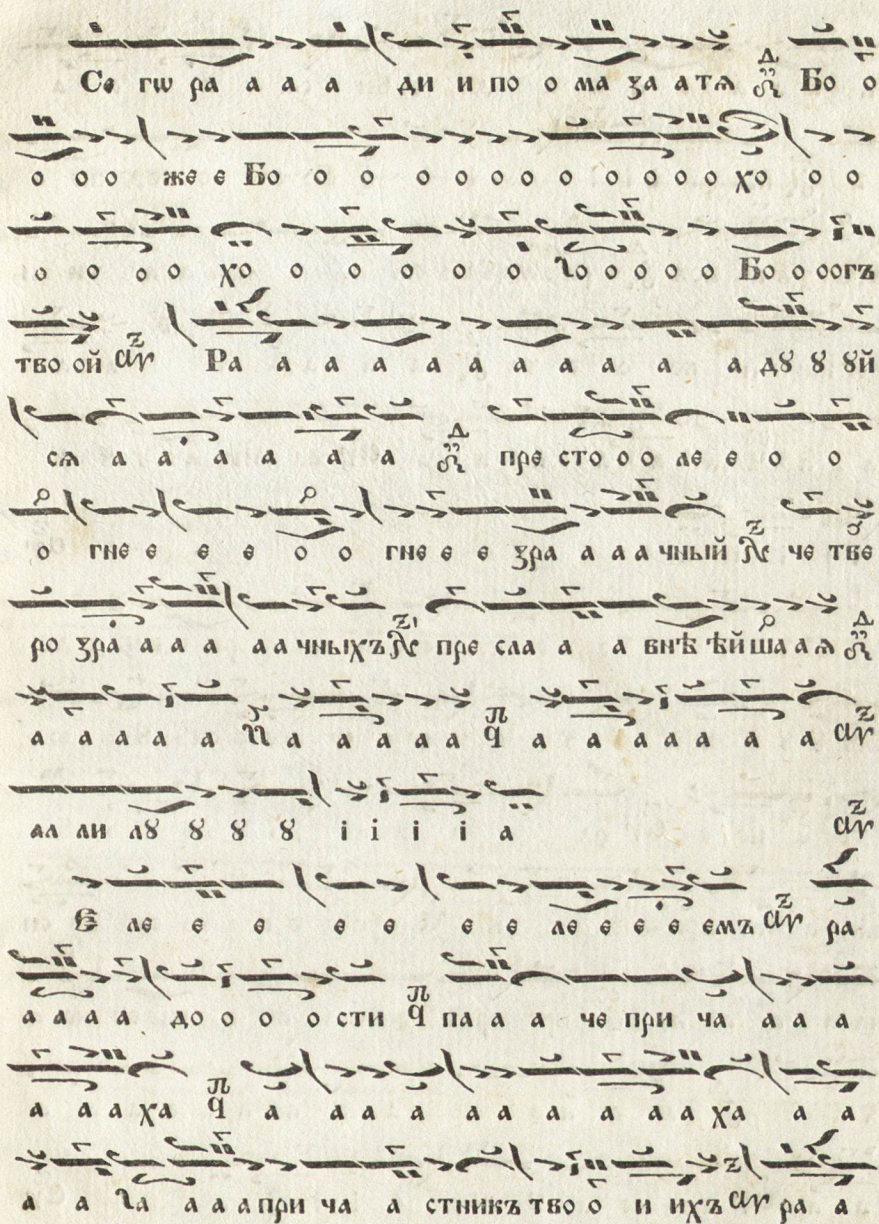 Сегѡ ра а а а ди и по о ма ꙁа а а тѧ Бо о
о о о же е Бо о о о о о о о о о о о хо о о
о о о о хо о о о о о о ꙇо о о о о Бо о оогъ
тво ой Ра а а а а а а а а а а дꙋ ꙋ ꙋй
сѧ а а а а а а пре сто о о ле е е о о
о гне е е е о о гне е е ꙁра а а а чный че тве
ро ꙁра а а а а а чныхъ пре сла а а внѣ ѣй ша а ѧ
а а а а а а а а а а а а а а а а а
ал ли лꙋ ꙋ ꙋ ꙋ і і і і а
Е ле е е е е е е ле е е е емъ ра
а а а а до о о о сти па а а а че при ча а а а
а а а ха а а а а а а а а а а ха а а
а а ꙇа а а а при ча а стникъ тво о и ихъ ра а